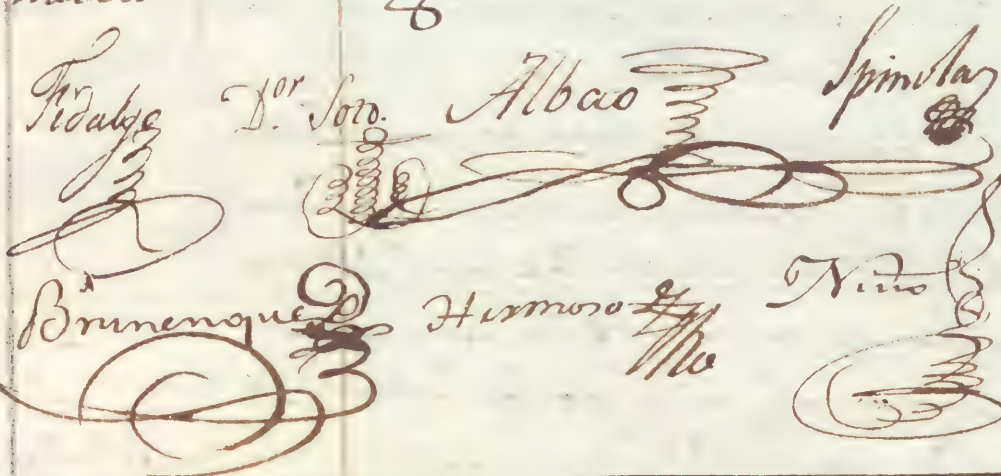 Fidalgo Dor. Soto. Albao Spinola
Brunenque Hermoso Niño